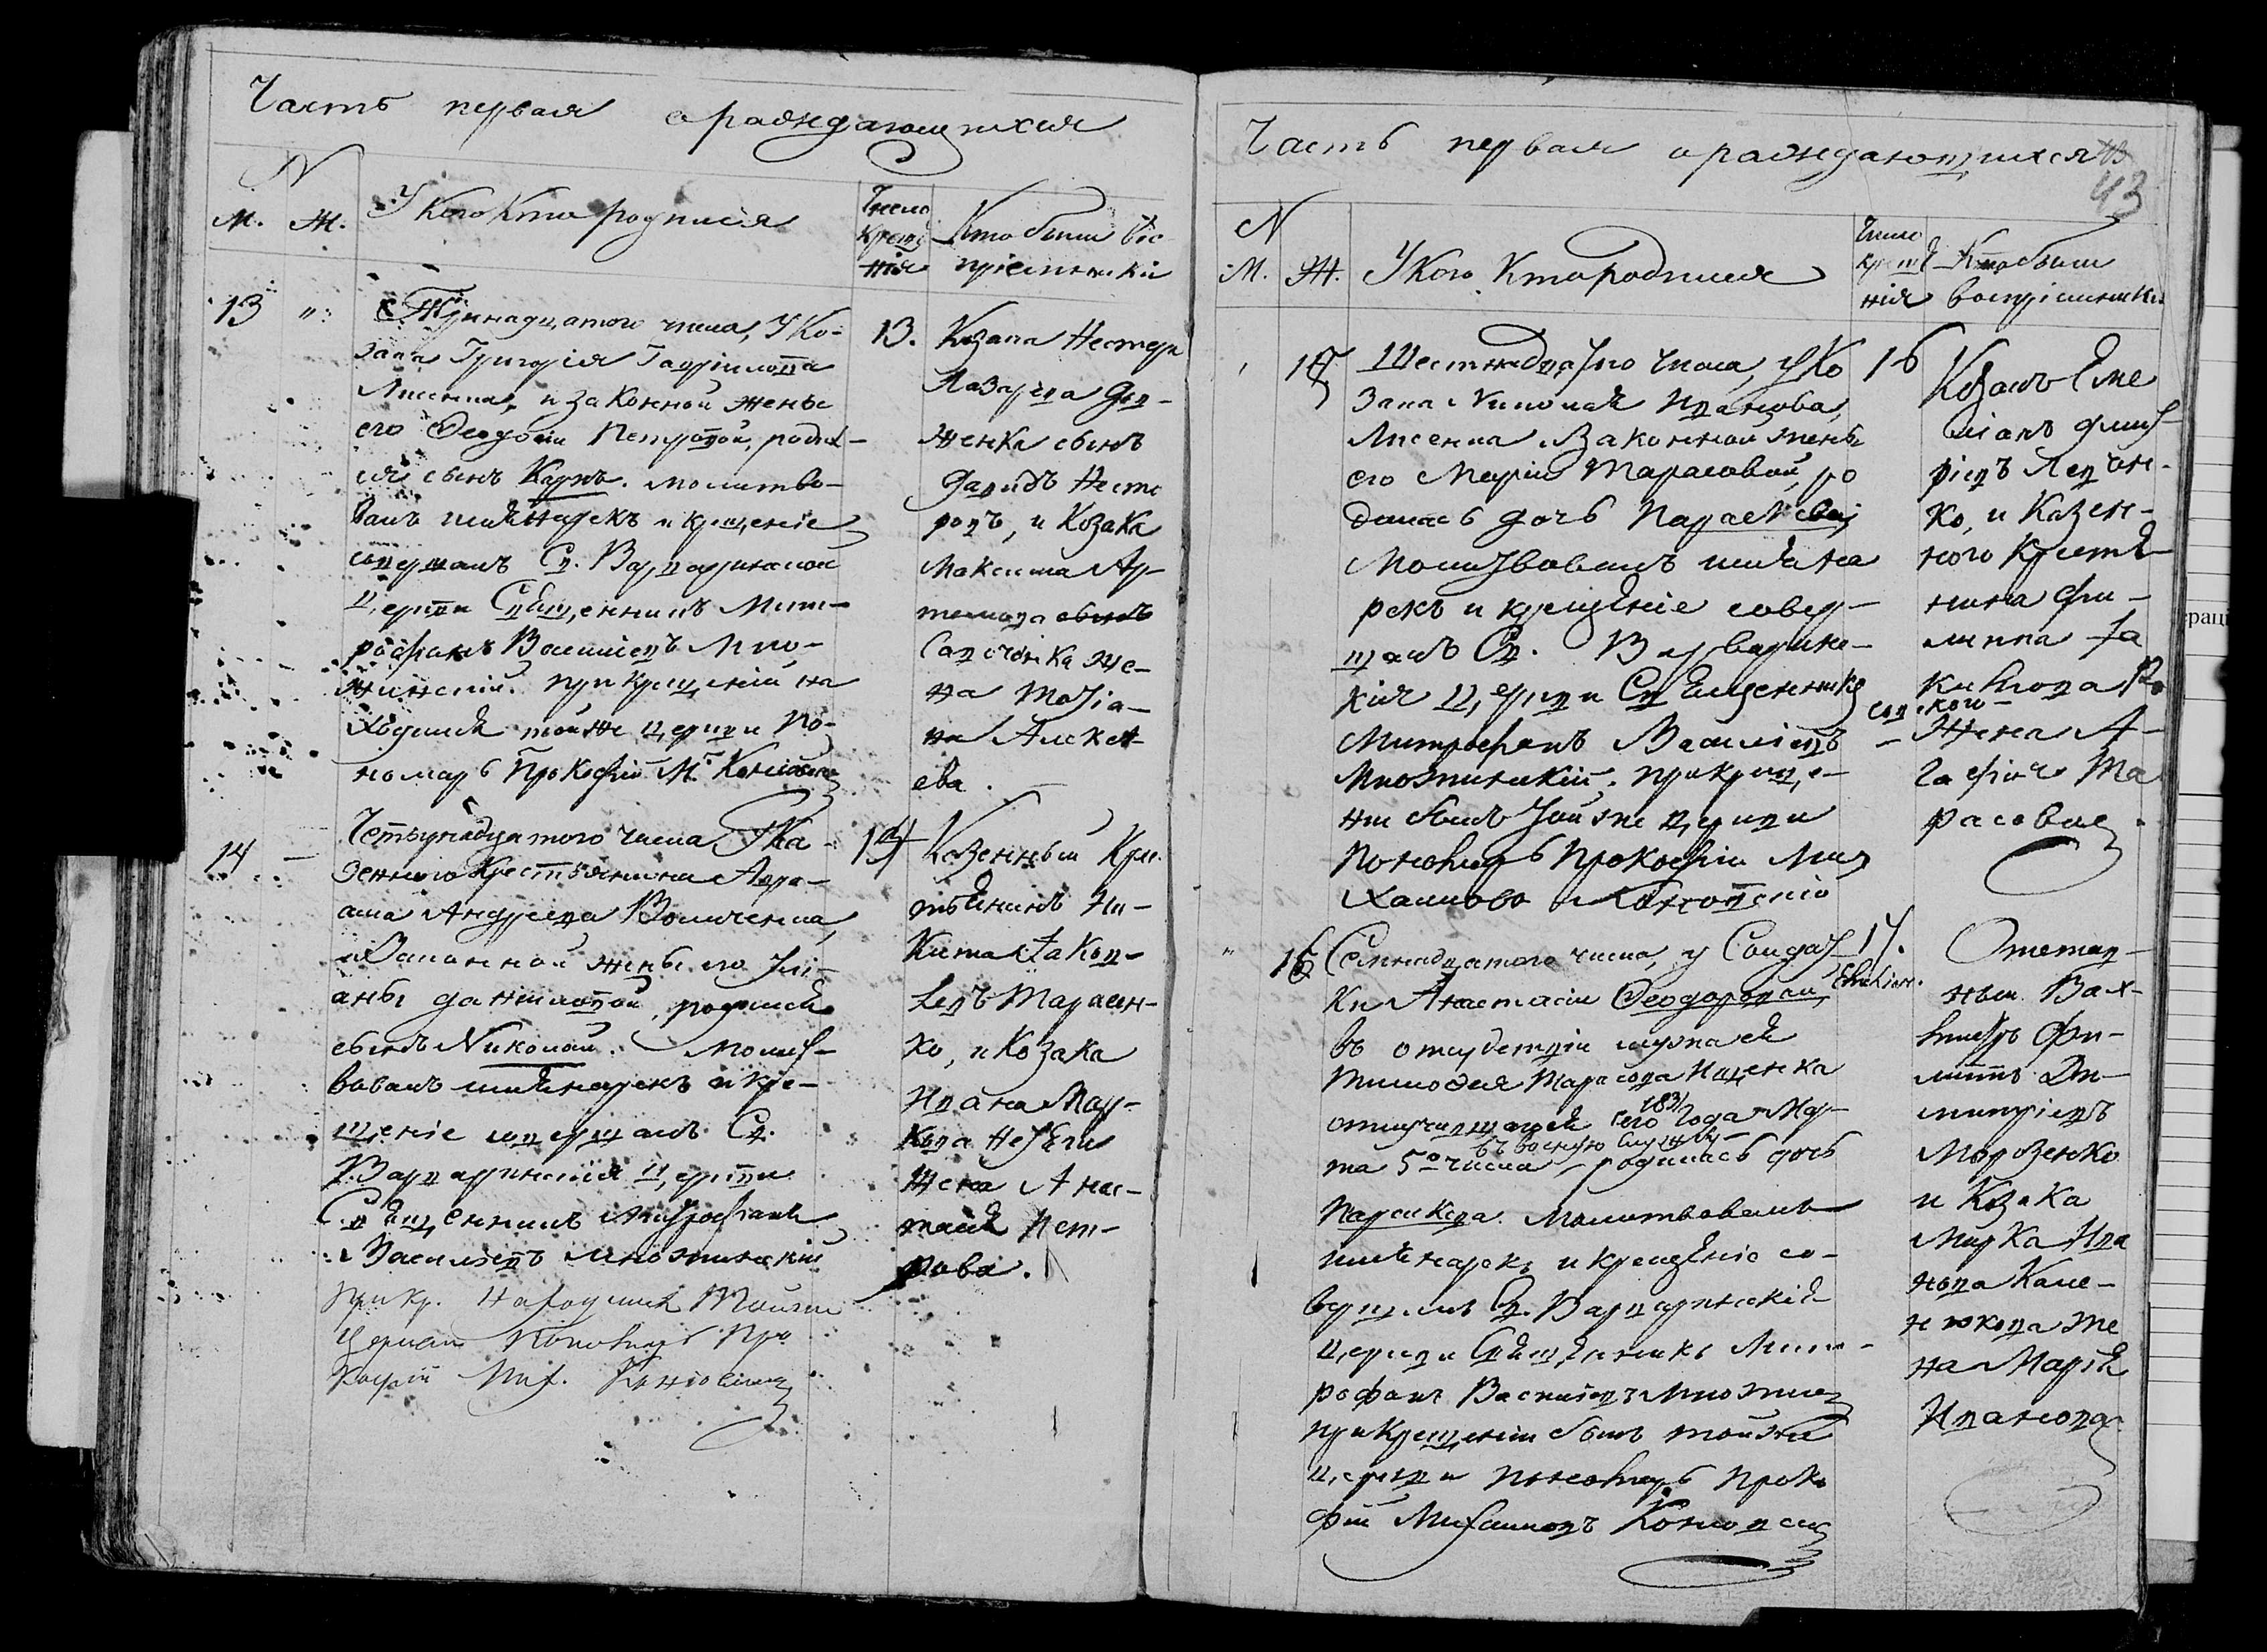 Часть первая о раждающихся
N
М. Ж.
У Кого Кто родился
Число
креще
нія
Кто были вос
пріемники
13 "
Тринадцатого числа, У Ко-
зака Григорія Гавріилова
Лисенка, и законной жены
его Феодосіи Петровой, родил-
ся сынъ Карпъ. молитво-
валъ имя нарекъ и крещеніе
совершалъ Св. Варваринской
Церкви Священникъ Мит-
рофанъ Василіевъ Мно-
жинскій. при крещеніи на
ходился тойже церкви По-
номарь Прокофій М.
13.
Козака Нестера
Лазарева
женка сынъ
Давидъ Несте
ровъ, и Козака
Максима Ар-
темова сынъ
же-
на Татіа-
на Алексе-
ева.
14 -
Четырнадцатого числа У Ка-
зенного Крестьянина Авра-
ама Андреева Волченка,
и Законной жены его Ули-
аны Даниловой, родился
сынъ Николай. Молит-
вовалъ имя нарекъ и кре-
щеніе совершалъ Св.
Варваринскія церкви
Священникъ Митрофанъ
Василіевъ Множинскій
При кр. находился Тойже
Церкви Пономарь Про
кофій Мих.
14
Казенный Крес
тьянинъ Ни-
кита Яков-
левъ Тарасен-
ко, и Козака
Ивана Мар-
кова
жена Анас-
тасія Пет-
рова.
Часть первая о раждающихся
43
N
М. Ж.
У Кого Кто родился
Число
креще
нія
Кто были
воспріемники
15
Шестнадцатого числа, у Ко
зака Николая Иванова
Лисенка Законной жены
его Маріи Тарасовой, ро
дилась дочь Параскевія
Молитвовалъ имя на
рекъ и крещеніе совер-
шалъ Св. Варварин-
кія Церкви Священникъ
Митрофанъ Василіевъ
Множинскій. при креще-
ніи былъ тойже церкви
Пономарь Прокофій Ми
хаиловъ
16
Козакъ Еме
ліанъ Дмит-
ріевъ Левчен-
ко, и Казен-
ного Крестья
нина Фи-
липпа Я
кимова
жена А-
гафія Та
расовая
" 16
Семнадцатого числа, у Солдат-
ки Анастасіи Феодоровой
въ отсудствіи мужа ея
Тимофея Тарасова Иценка
отлучившагося сего 1831 года Мар-
въ военную службу
та 5го числа родилась дочь
Параскева. Молитвовалъ
имя нарекъ и крещеніе со-
вершилъ Св. Варваринскія
церкви Священникъ Мит-
рофанъ Василіевъ Множин
при Крещеніи былъ тойже
церкви Пономарь Проко
фій Михаиловъ
17.
Отстав-
ный Вах-
мистръ Фи-
липпъ Ди-
митріевъ
Морозенко
и Козака
Марка Ива
нова Каме-
нюкова же
на Марія
Иванова